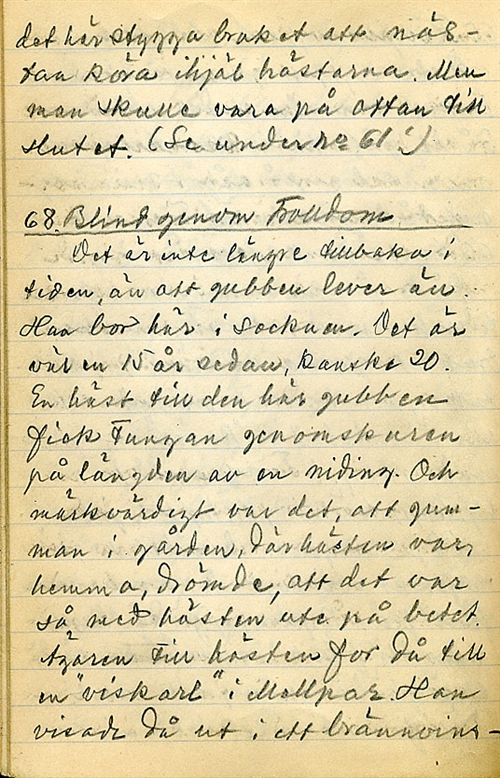 det här stygga braket att näs-
tan köra ihjäl hästarna. Men
man skulle vara på ottan till
slutet. (Se under no 61!)
68. Blind genom Trolldom
Det är inte längre tillbaka i
tiden, än att gubben lever än.
Han bor här i socknen. Det är
väl en 15 år sedan, kanske 20.
En häst till den här gubben
fick tungan genomskuren
på längden av en niding. Och
märkvärdigt var det, att gum-
man i gården, där hästen var
hemma, drömde, att det var
så med hästen ute på betet.
Ägaren till hästen for då till
en "viskarl" i Mellpar. Han
visade då ut i ett brännvins-